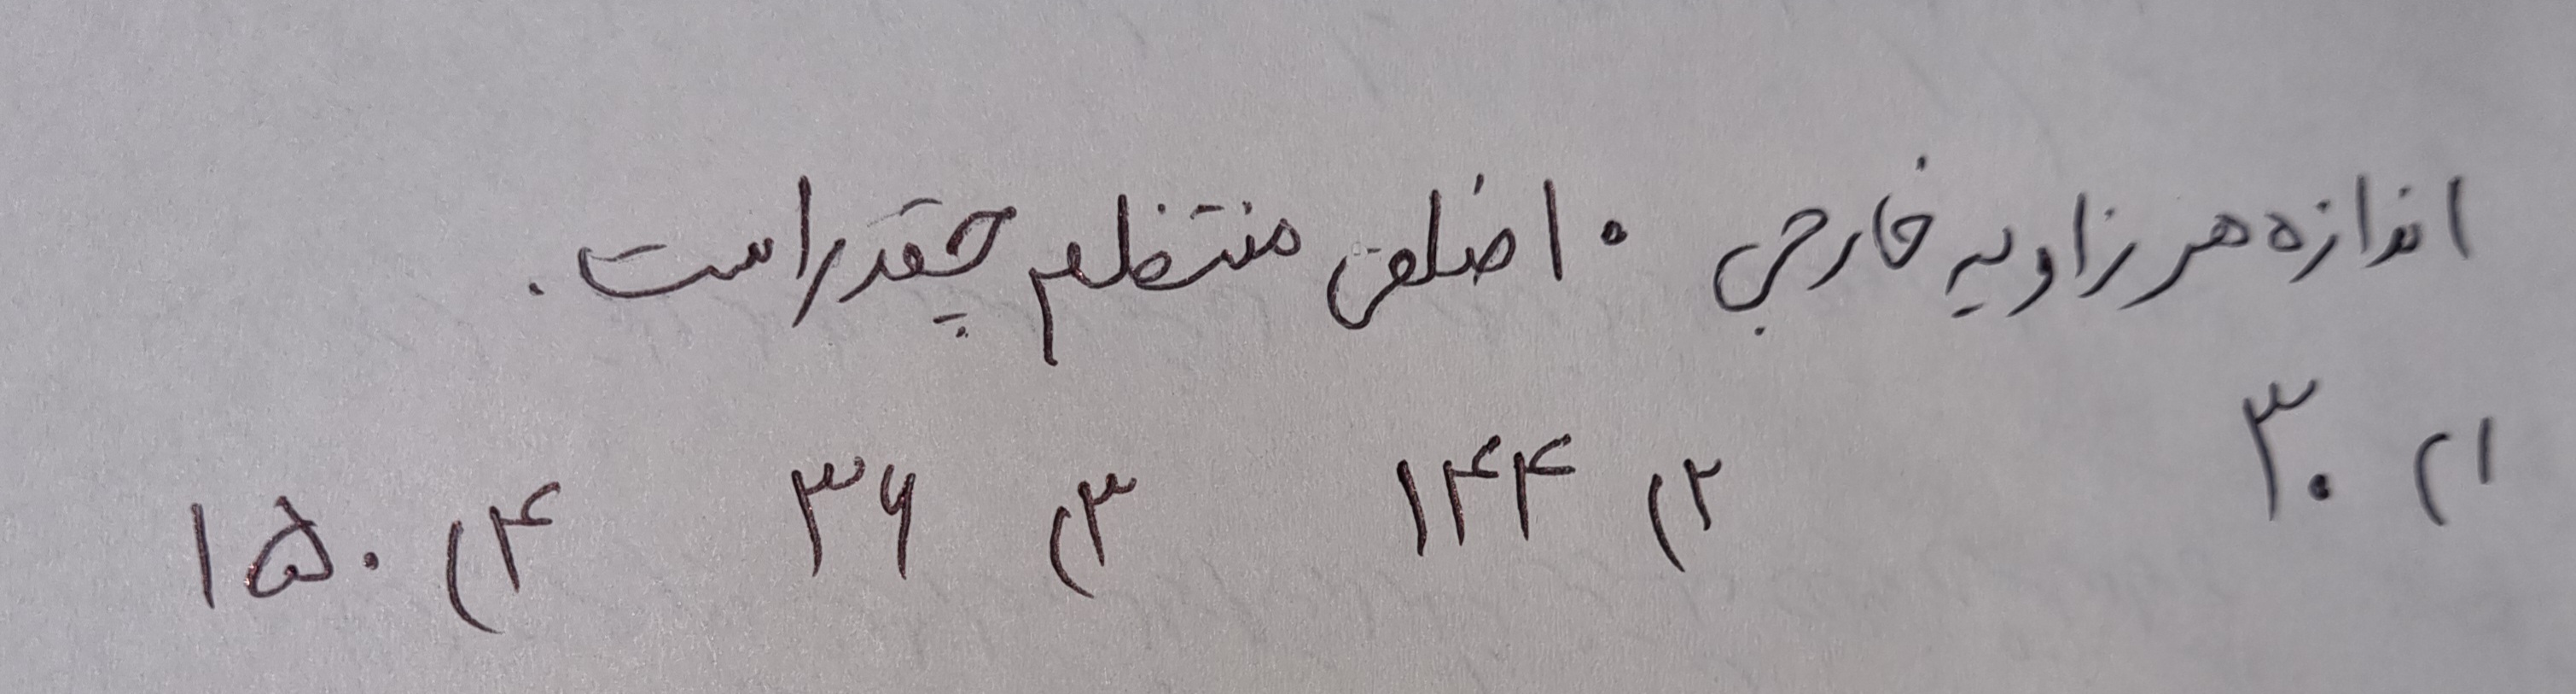 اندازه هر زاویه خارجی ۱۰ ضلعی منتظم چقدر است.
۱) ۳۰ ۲) ۱۴۴ ۳) ۳۶ ۴) ۱۵۰